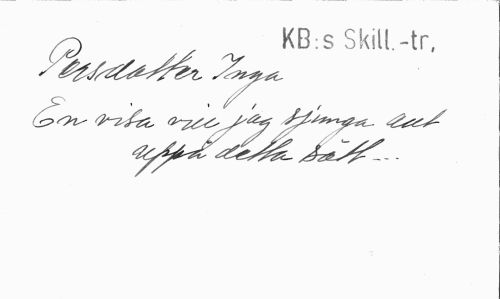 KB:s Skill.-tr,
Persdatter Inga
En visa vill jag sjunga allt
uppå detta sätt...